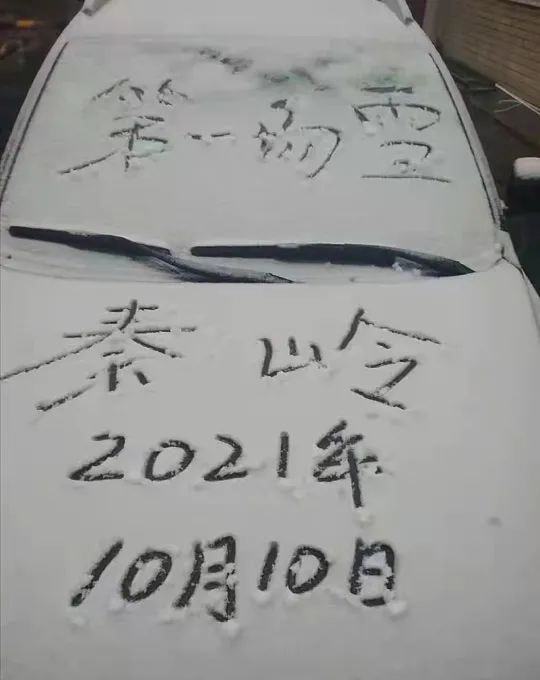 第一场雪
秦岭
2021年
10月10日